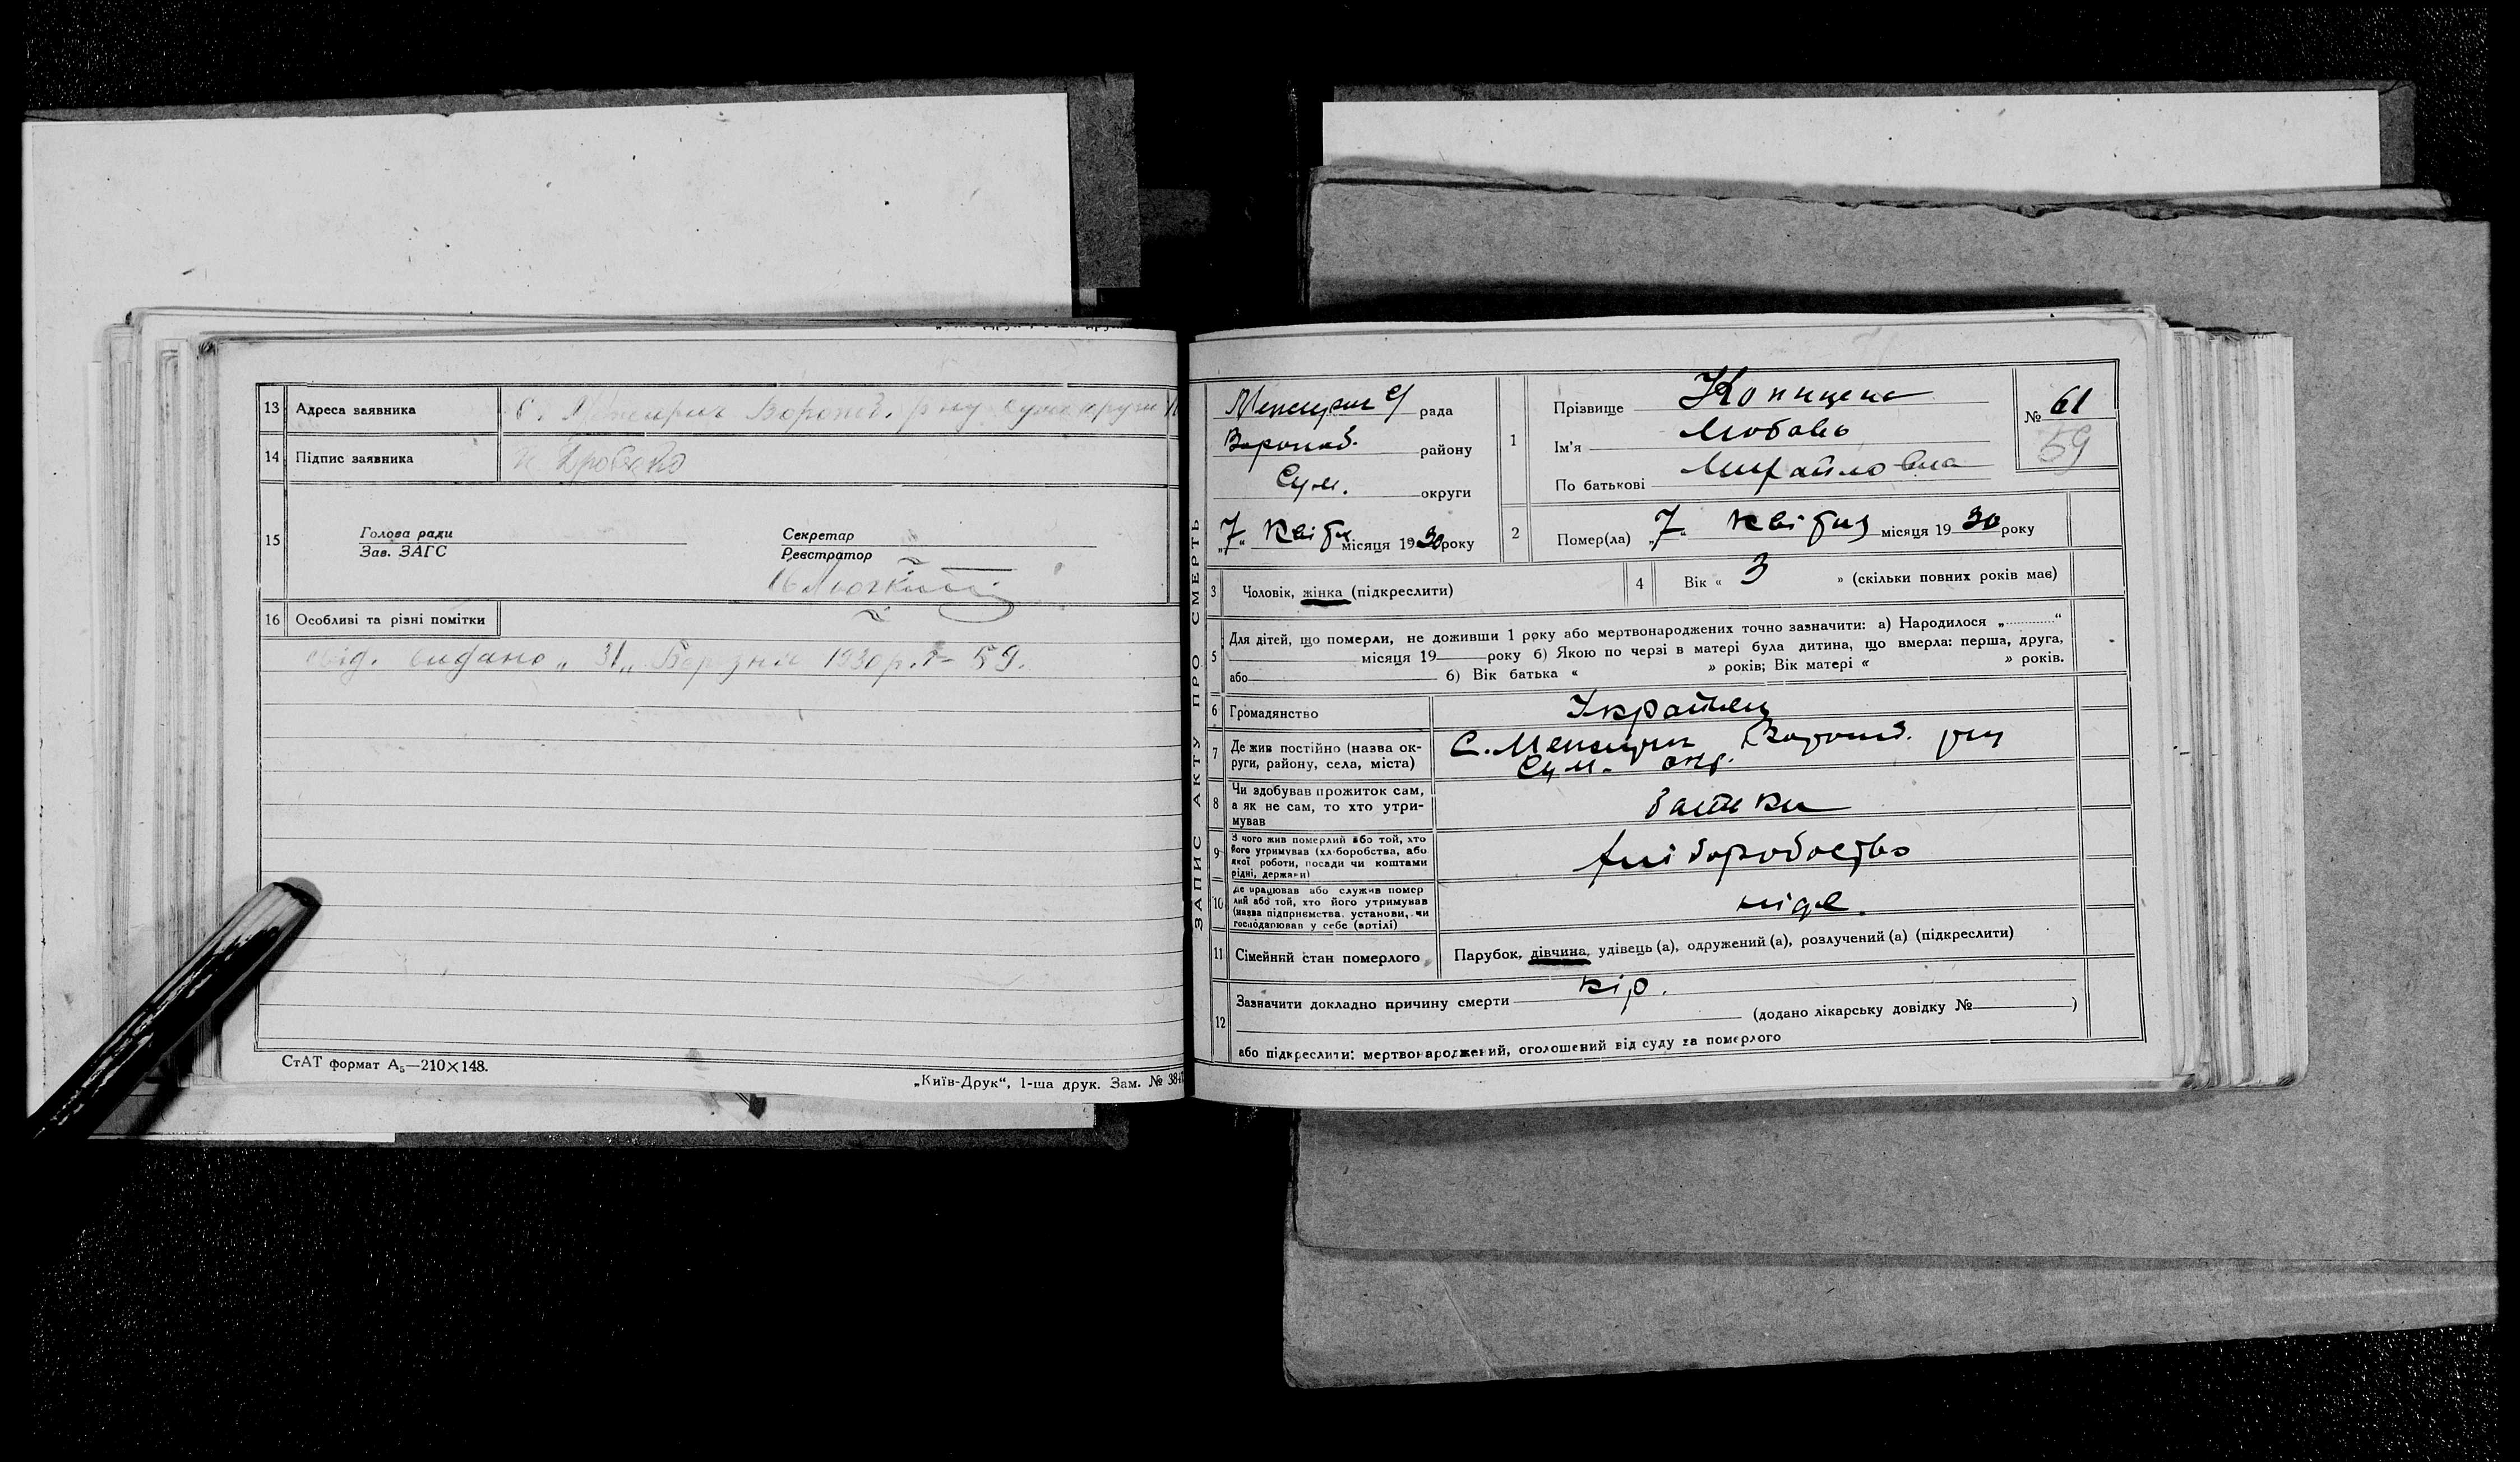 13 Адреса заявника
14 Підпис заявника
15 Голова ради
Зав. ЗАГС
Секретар
Реєстратор
16 Особливі та різні помітки
свід. видано „31„ Березня 1930 р. № 59.
СтАТ формат А₅—210×148.
„Київ-Друк“, 1-ша друк. Зам. № 384
ЗАПИС АКТУ ПРО СМЕРТЬ
рада
району
Сум. округи
„7“ Квітня місяця 1930 року
1 Прізвище
Ім'я Любовь
По батькові Михайловна
№ 61
59
2 Помер(ла) „7“ квітня місяця 1930 року
3 Чоловік, жінка (підкреслити)
4 Вік « 3 » (скільки повних років має)
5 Для дітей, що померли, не доживши 1 року або мертвонароджених точно зазначити: а) Народилося „ “
місяця 19 року б) Якою по черзі в матері була дитина, що вмерла: перша, друга,
або б) Вік батька « » років; Вік матері « » років.
6 Громадянство Українец
7 Де жив постійно (назва ок-
руги, району, села, міста)
Сум. окр.
8 Чи здобував прожиток сам,
а як не сам, то хто утри-
мував
батьки
9 З чого жив померлий або той, хто
його утримував (хліборобства, або
якої роботи, посади чи коштами
рідні, держави)
хліборобство
10 Де працював або служив помер
лий або той, хто його утримував
(назва підприємства, установи, чи
господарював у себе (артілі)
ніде.
11 Сімейний стан померлого Парубок, дівчина, удівець (а), одружений (а), розлучений (а) (підкреслити)
12 Зазначити докладно причину смерти кір.
(додано лікарську довідку № )
або підкреслити: мертвонароджений, оголошений від суду за померлого